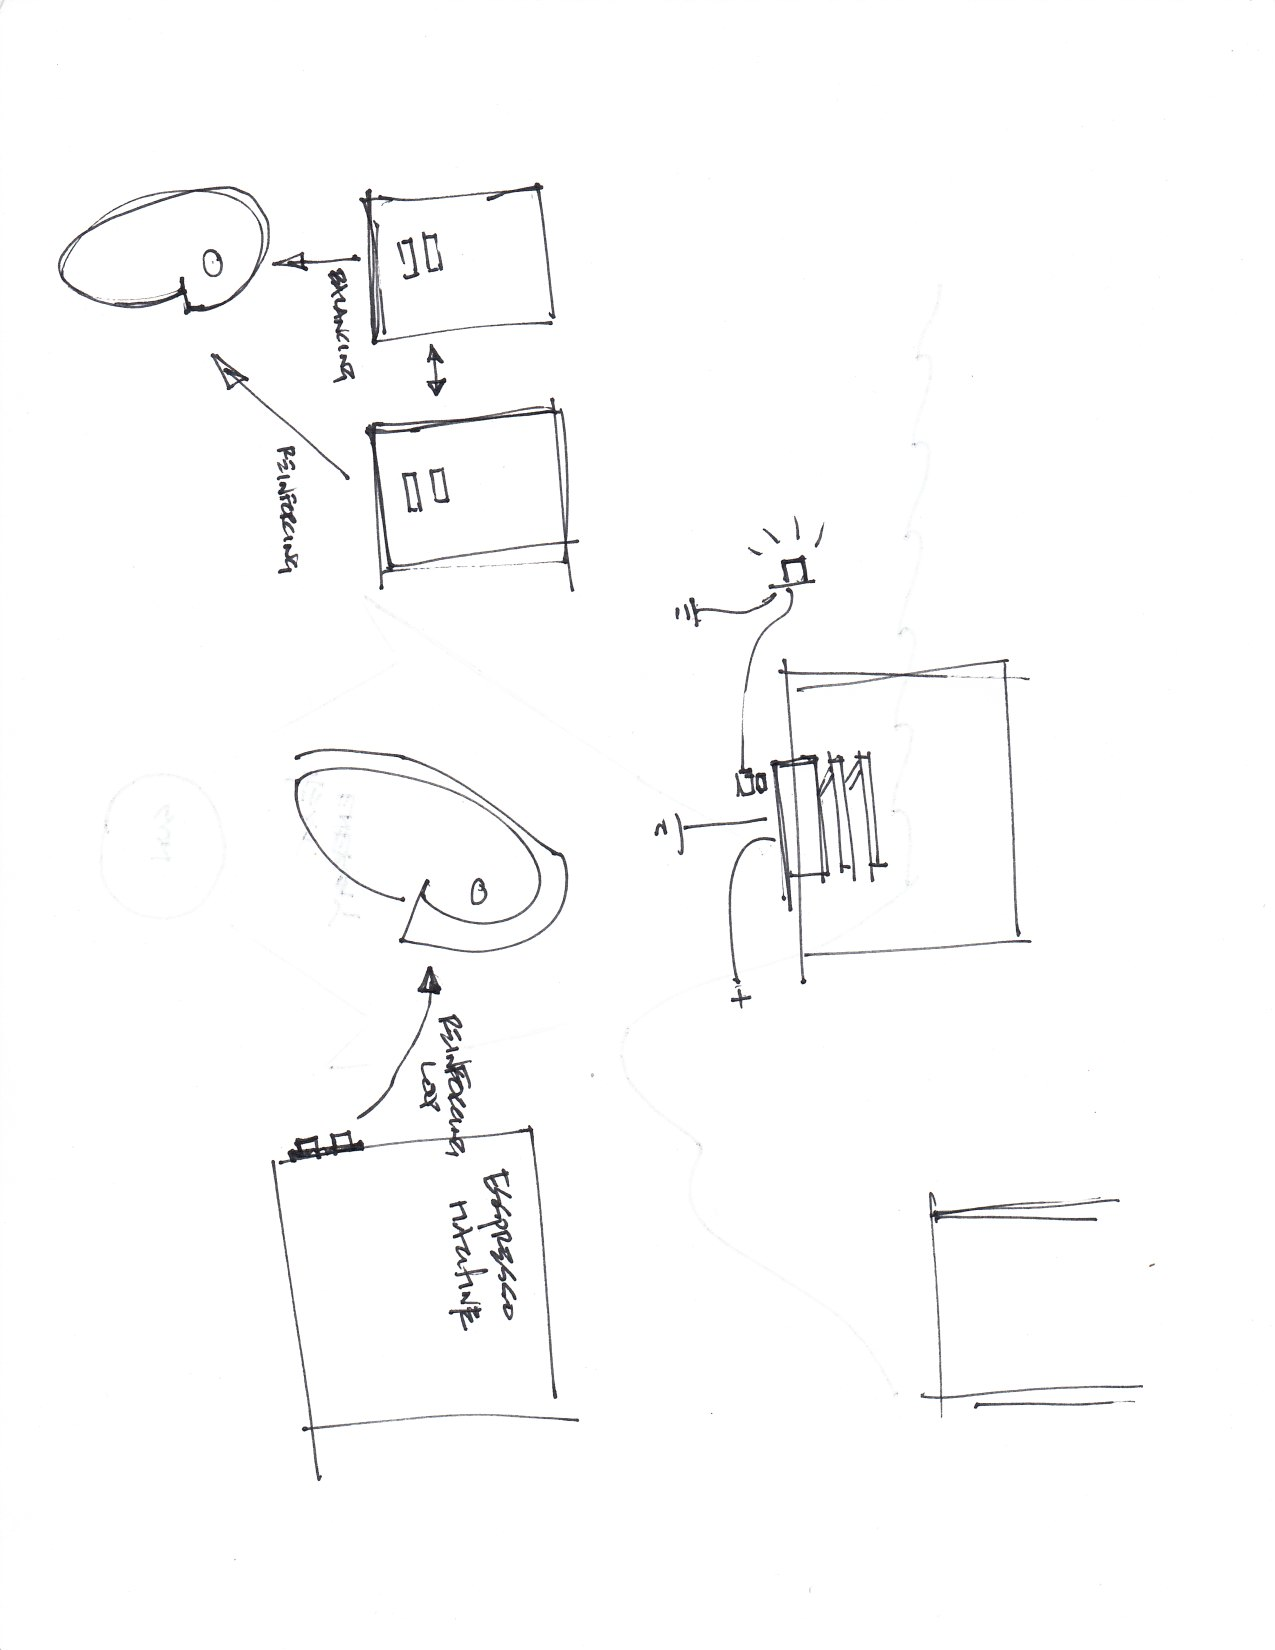 BALANCING
REINFORCING
REINFORCING
LOOP
ESSPRESSO
MACHINE
+